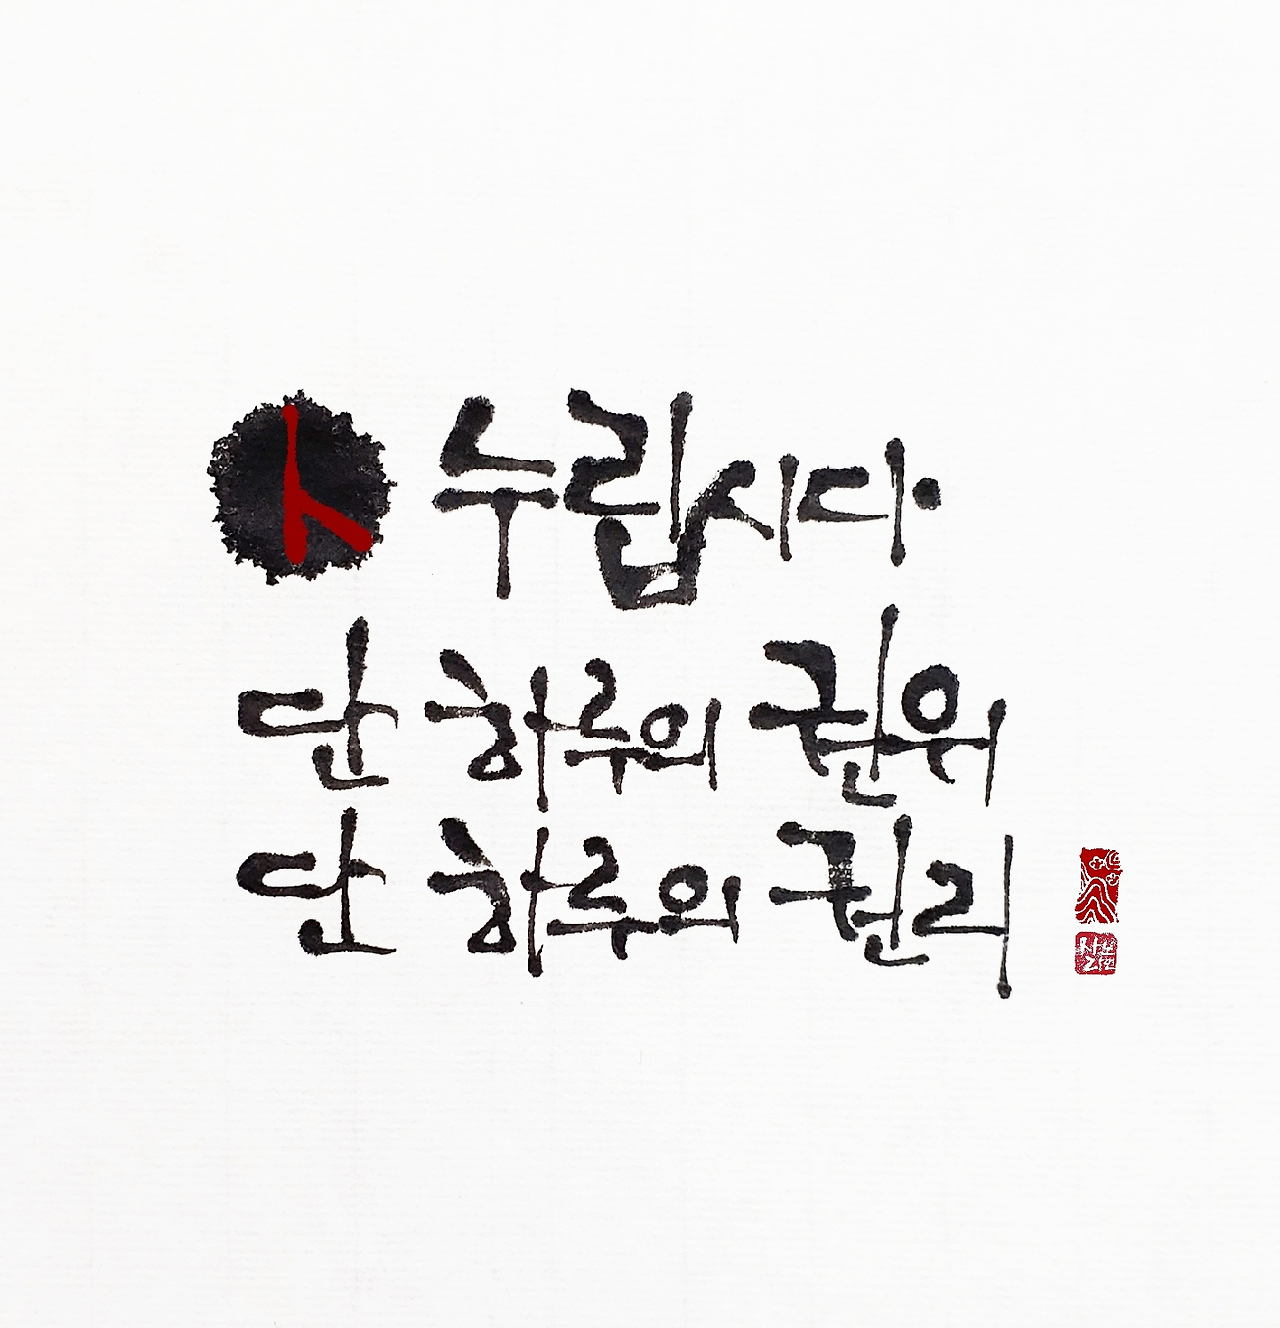 누립시다.
단 하루의 권위
단 하루의 권리